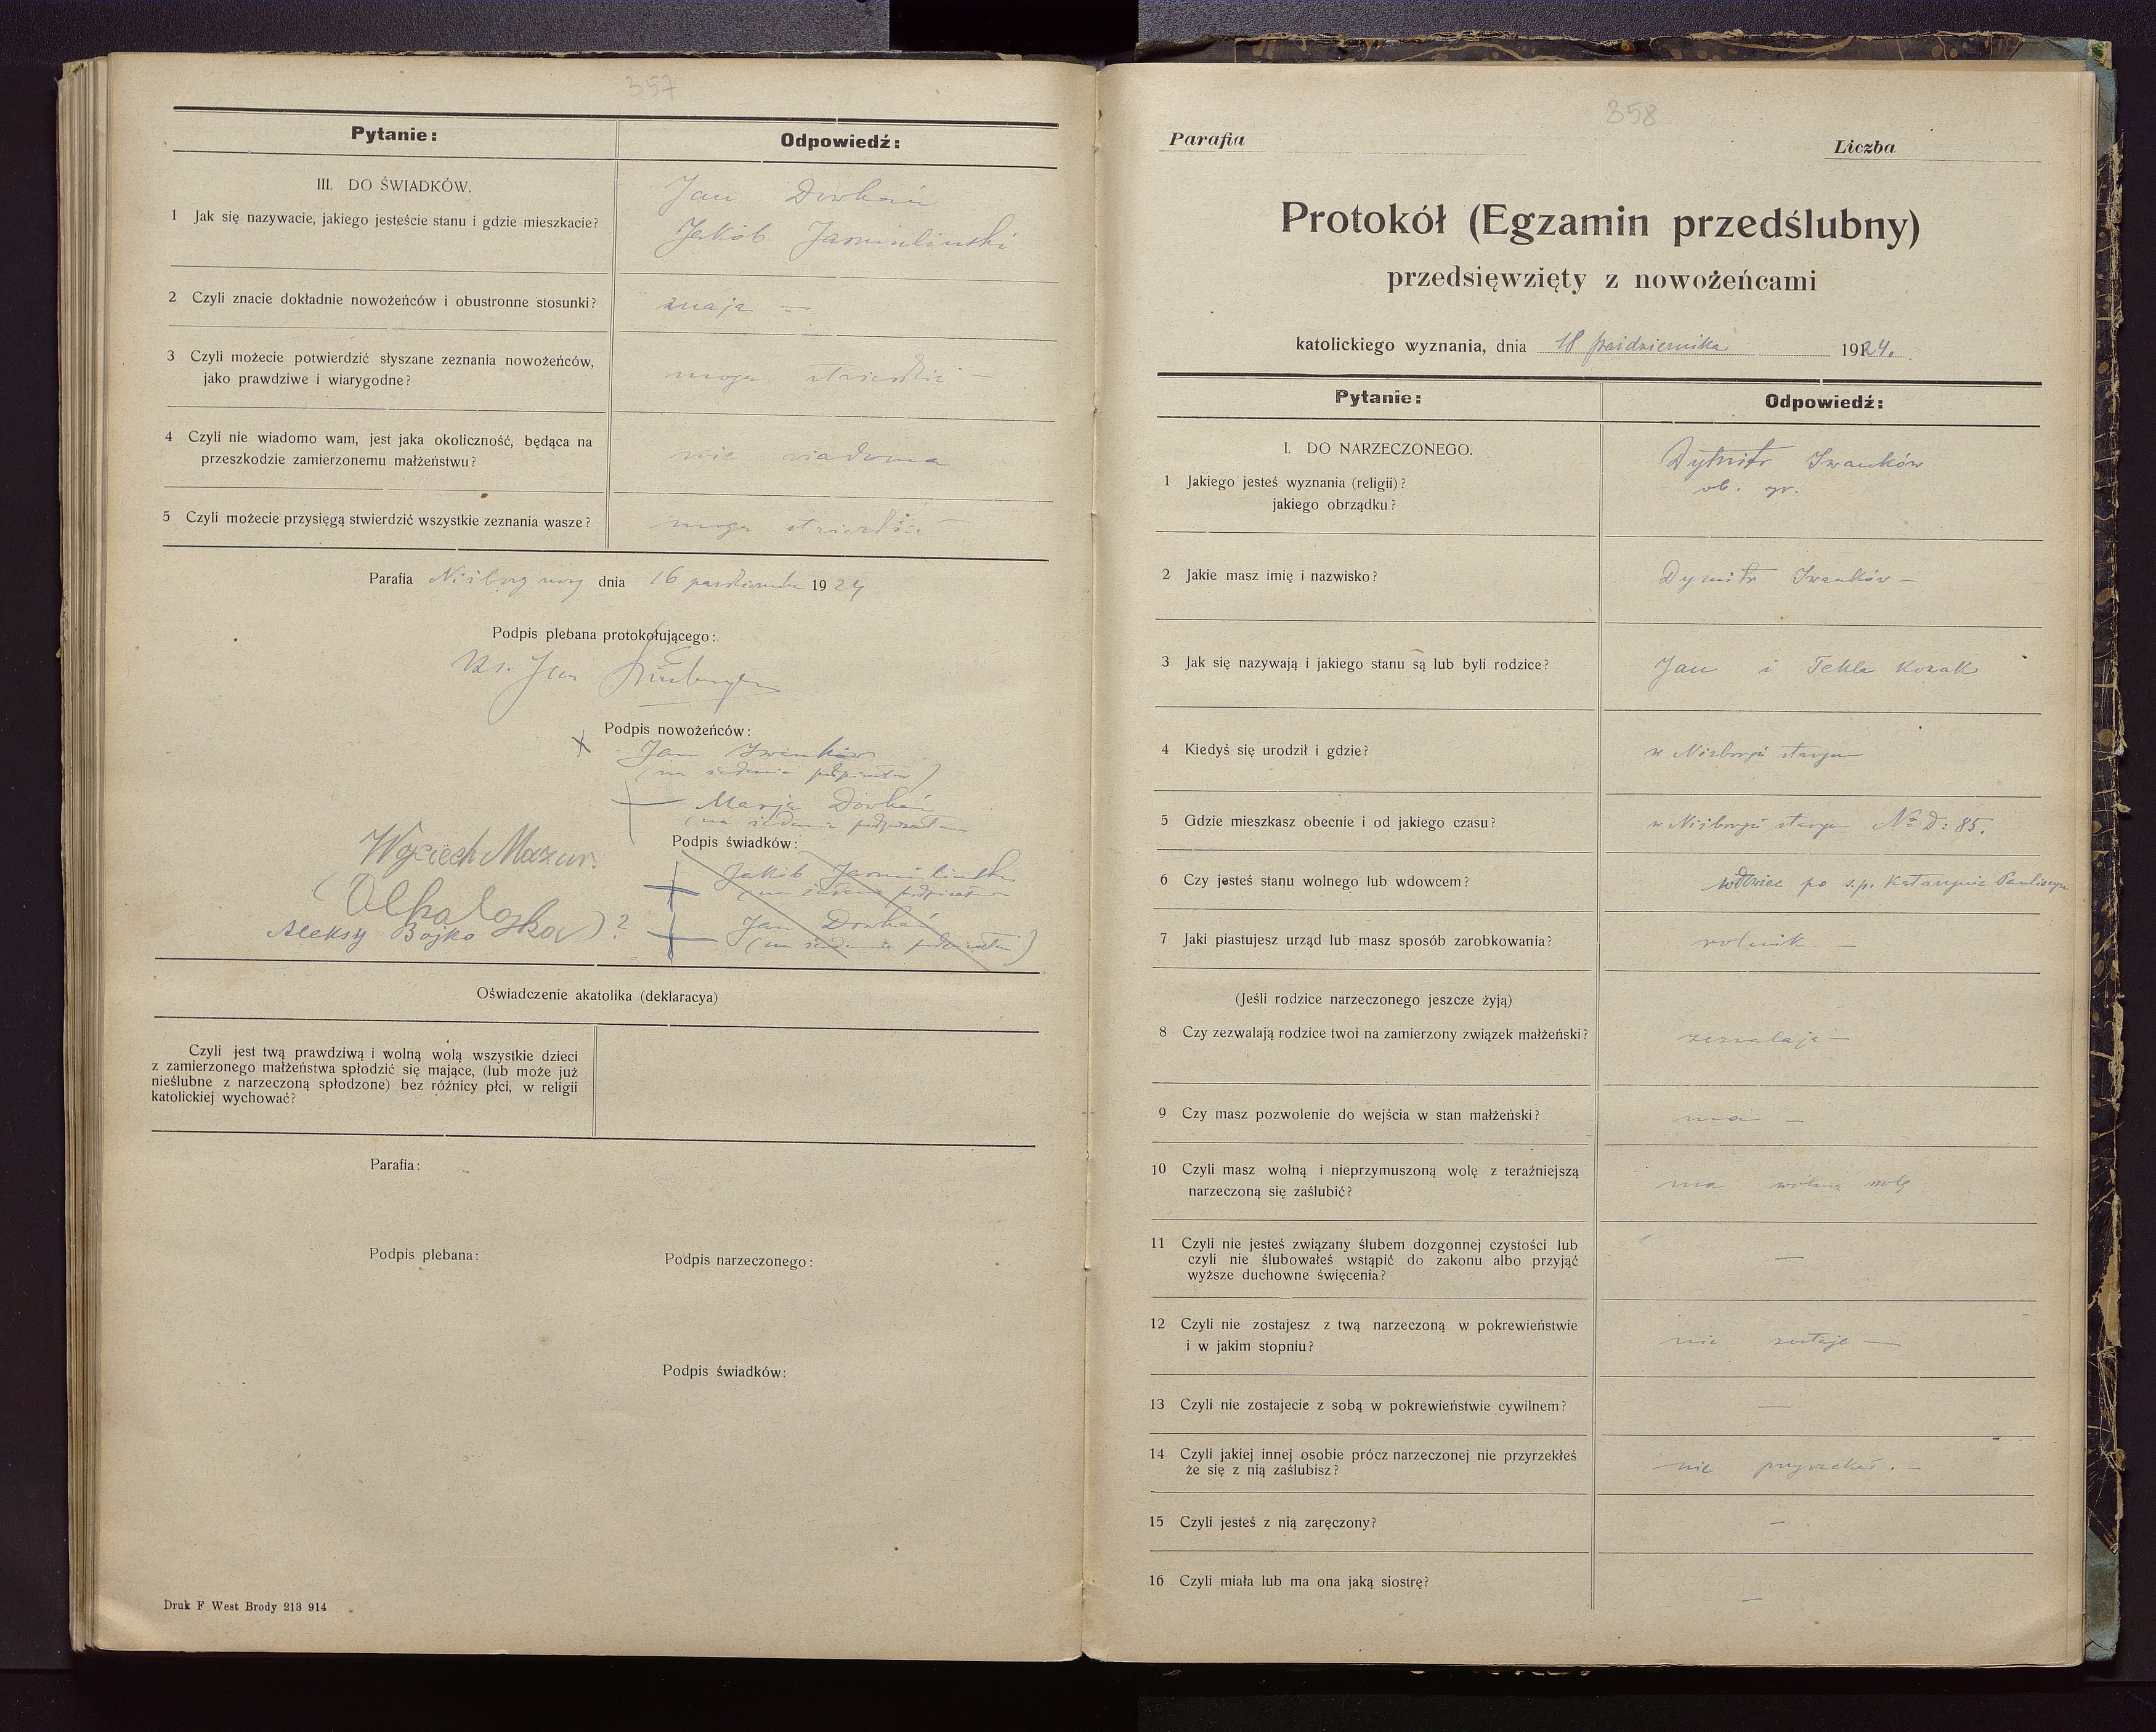 357
Pytanie:
Odpowiedź:
III. DO ŚWIADKÓW.
1 Jak się nazywacie, jakiego jesteście stanu i gdzie mieszkacie?
Jan Dowhań
Jakób Jarmuliński
2 Czyli znacie dokładnie nowożeńców i obustronne stosunki?
znają —
3 Czyli możecie potwierdzić słyszane zeznania nowożeńców,
jako prawdziwe i wiarygodne?
mogą stwierdzić —
4 Czyli nie wiadomo wam, jest jaka okoliczność, będąca na
przeszkodzie zamierzonemu małżeństwu?
nie wiadoma
5 Czyli możecie przysięgą stwierdzić wszystkie zeznania wasze?
mogą stwierdzić —
Parafia Niżborg nowy dnia 16 października 1924
Podpis plebana protokołującego:
Ks. Jan
Podpis nowożeńców:
Jan Iwanków
(na żądanie podpisałem)
Marja Dowhań
(na żądanie podpisałem
Podpis świadków:
Jakób Jarmuliński
(na żądanie podpisałem
Jan Dowhań
(na żądanie podpisałem)
Wojciech Mazur.
Aleksy Bojko
Oświadczenie akatolika (deklaracya)
Czyli jest twą prawdziwą i wolną wolą wszystkie dzieci
z zamierzonego małżeństwa spłodzić się mające, (lub może już
nieślubne z narzeczoną spłodzone) bez różnicy płci, w religii
katolickiej wychować?
Parafia:
Podpis plebana:
Podpis narzeczonego:
Podpis świadków:
Druk F West Brody 213 914
358
Parafia
Liczba
Protokół (Egzamin przedślubny)
przedsięwzięty z nowożeńcami
katolickiego wyznania, dnia 18 października 1924.
Pytanie:
Odpowiedź:
I. DO NARZECZONEGO.
1 Jakiego jesteś wyznania (religii)?
jakiego obrządku?
Dymitr Iwanków
ob. gr.
2 Jakie masz imię i nazwisko?
Dymitr Iwanków —
3 Jak się nazywają i jakiego stanu są lub byli rodzice?
Jan i Tekla Kozak
4 Kiedyś się urodził i gdzie?
w Niżborgu starym
5 Gdzie mieszkasz obecnie i od jakiego czasu?
w Niżborgu starym No D: 85.
6 Czy jesteś stanu wolnego lub wdowcem?
wdowiec po s.p. Katarzynie
7 Jaki piastujesz urząd lub masz sposób zarobkowania?
rolnik —
(Jeśli rodzice narzeczonego jeszcze żyją)
8 Czy zezwalają rodzice twoi na zamierzony związek małżeński?
zezwalają —
9 Czy masz pozwolenie do wejścia w stan małżeński?
ma —
10 Czyli masz wolną i nieprzymuszoną wolę z teraźniejszą
narzeczoną się zaślubić?
ma wolną wolę
11 Czyli nie jesteś związany ślubem dozgonnej czystości lub
czyli nie ślubowałeś wstąpić do zakonu albo przyjąć
wyższe duchowne święcenia?
—
12 Czyli nie zostajesz z twą narzeczoną w pokrewieństwie
i w jakim stopniu?
nie zostaje —
13 Czyli nie zostajecie z sobą w pokrewieństwie cywilnem?
—
14 Czyli jakiej innej osobie prócz narzeczonej nie przyrzekłeś
że się z nią zaślubisz?
nie przyrzekał. —
15 Czyli jesteś z nią zaręczony?
—
16 Czyli miała lub ma ona jaką siostrę?
—